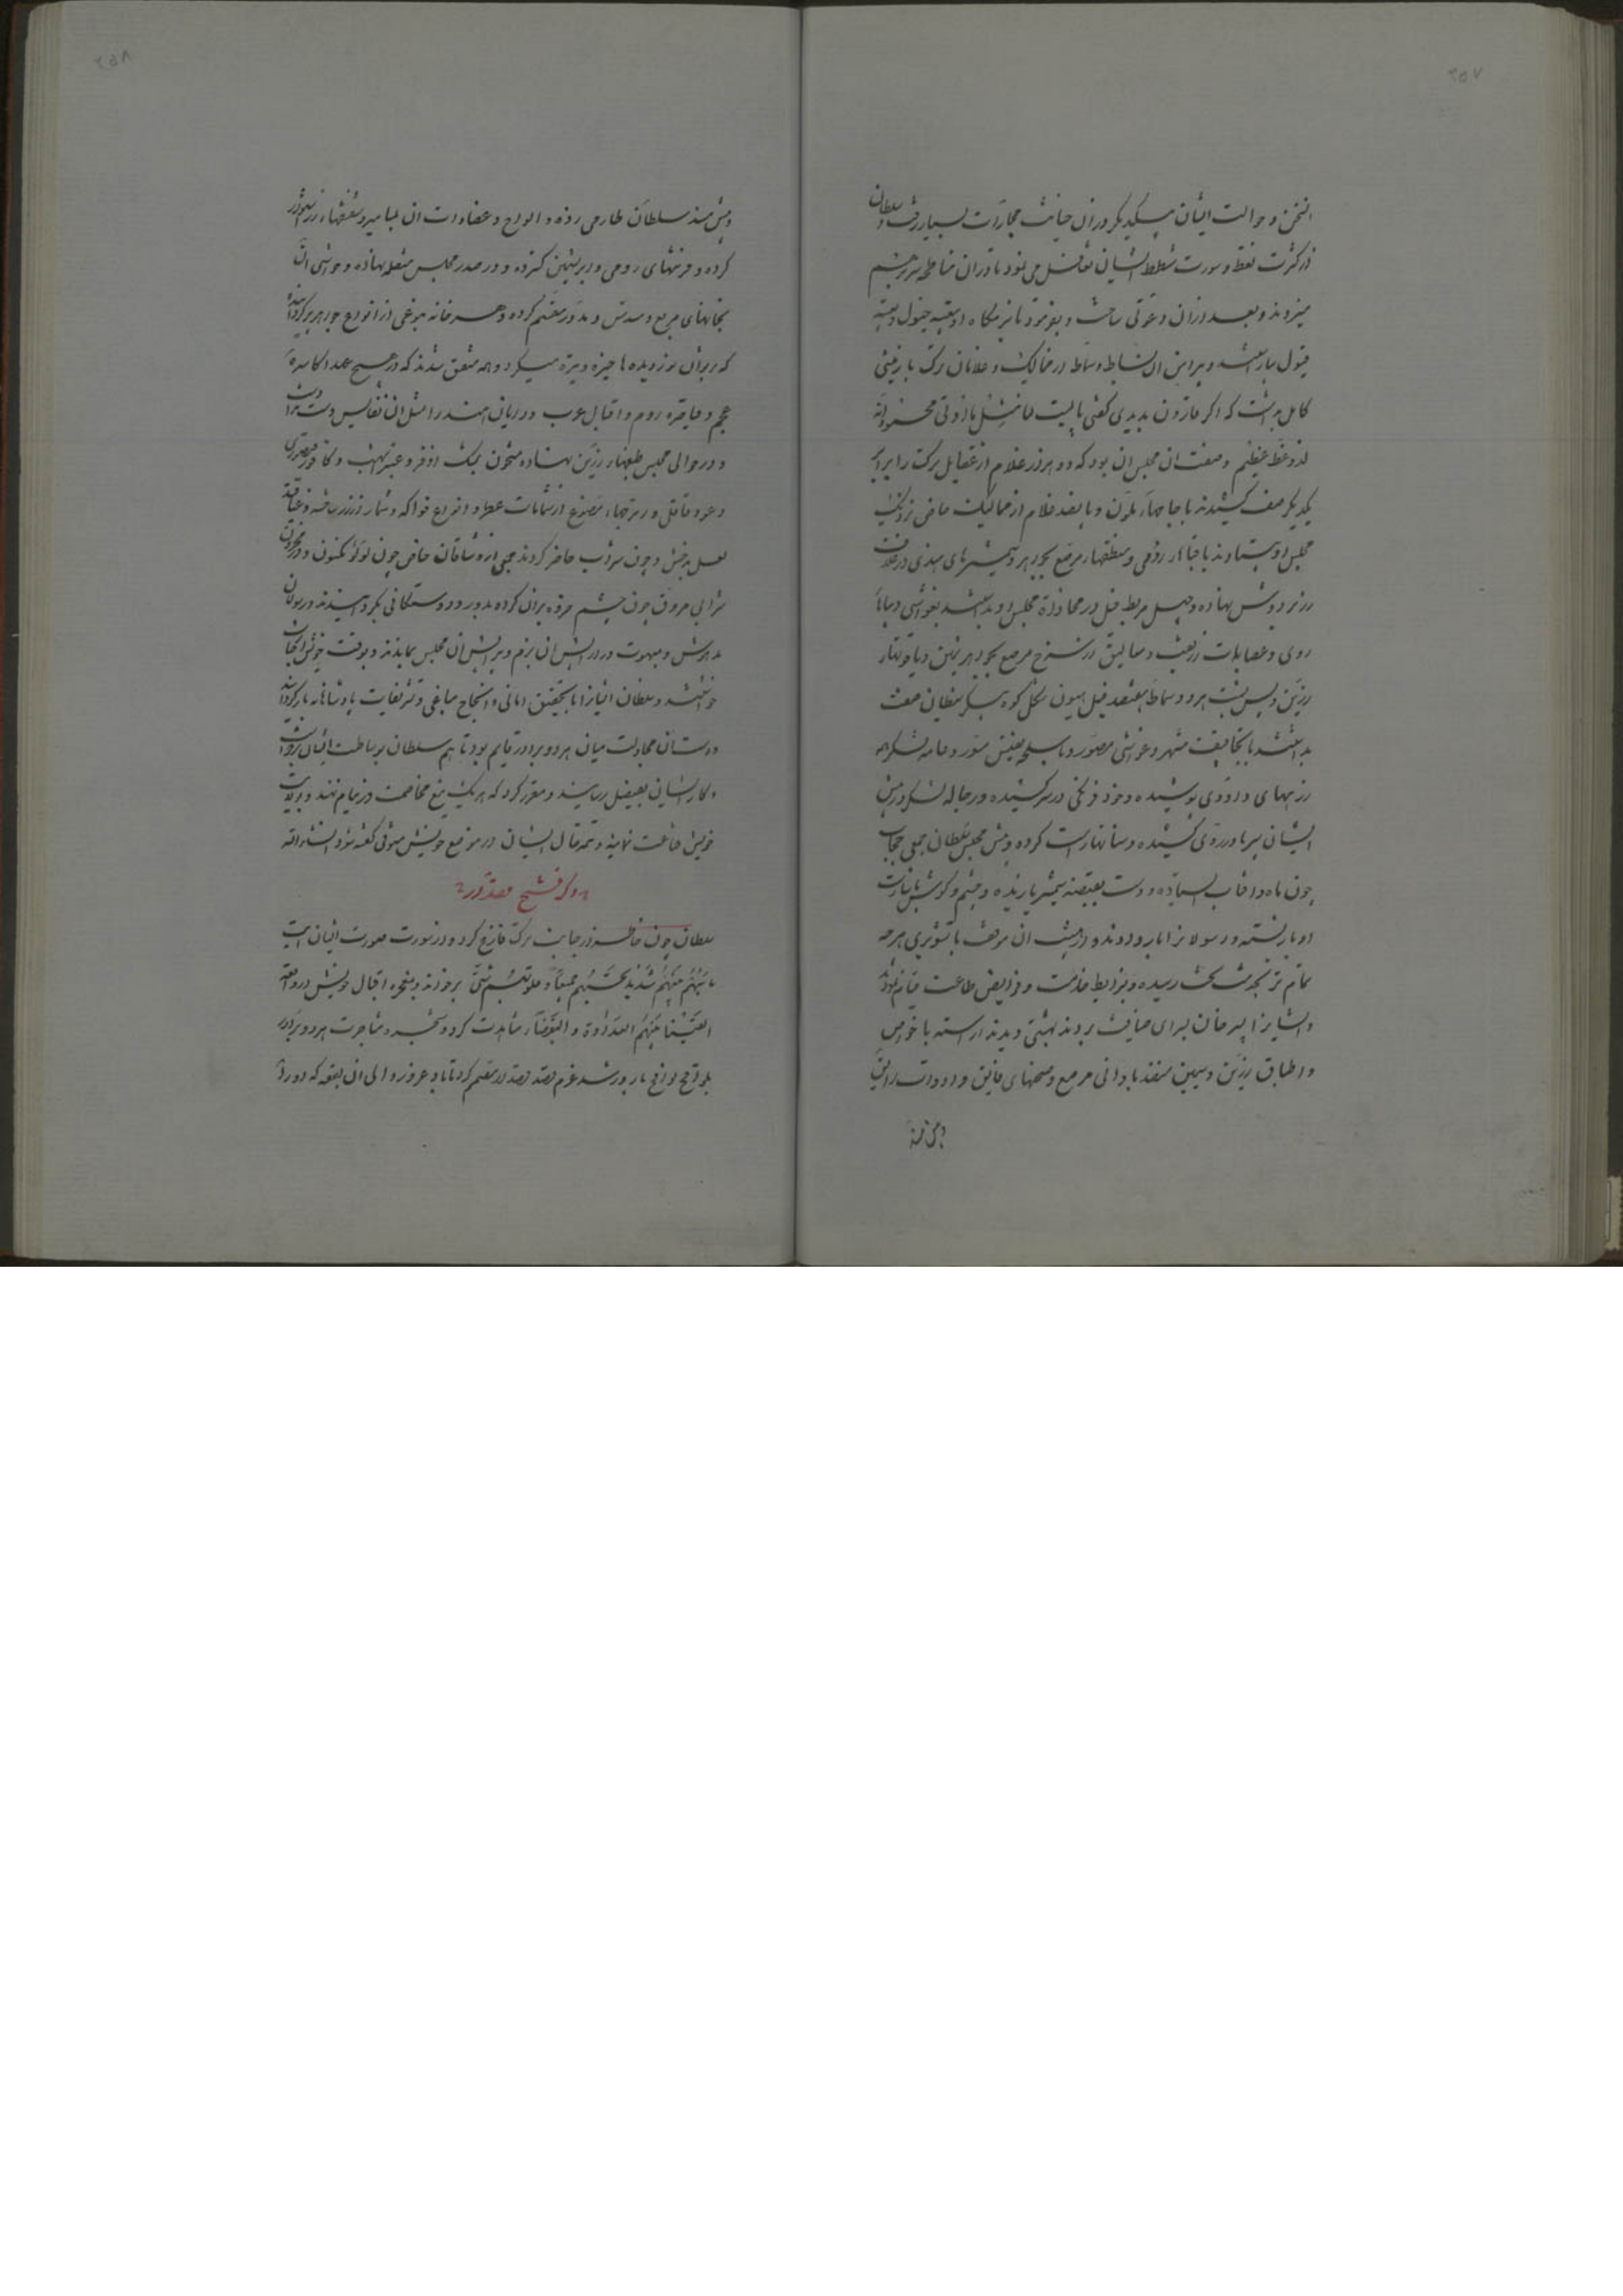 ٢٥٧
و حوالت ایشان بیکدیگر و در آن خیانت مجارات بسیار رفت و سلطان
از کثرت لغط و سورت شطط ایشان تغافل می نمود تا در آن مناطحه سر بر هم
میزدند و بعد از آن دعوتی ساخت و بفرمود تا بزمگاه او بتعبیه خیول و تعبیه
فیول بیاراستند و پیرامن آن بساط وسماط از ممالیک و غلامان ترک با زینتی
کامل بداشت که اگر قارون بدیدی گفتی یا لیت لنا مثل ما اوتی محمود انه
لذو حظ عظیم و صفت آن مجلس آن بود که دو هزار غلام از ترک را برابر
یکدیگر صف کشیدند با جامهاء ملون و پانصد غلام از ممالیک خاص نزدیک
مجلس او بیستادند با قباهاء رومی و منطقهاء مرصع بجواهر و شمشیرهای هندی در غلاف
زر بر دوش نهاده و چهل مربط فیل در محاذاة مجلس او بداشتند بغواشی دیباء
رومی و عصابات و معالیق زر سرخ مرصع بجواهر ثمین و یاقوتهاء
رزین و پس پشت هر دو سماط هفتصد فیل هیون شکل کوه پیکر شیطان صفت
بداشتند با تجافیف مشهر و غواشی مصور و باسلحه نفیس مستور و عامه لشکر همه
زرههای داودی پوشیده و خود فرنگی در سر کشیده و رجاله لشکر در پیش
ایشان سپرها در روی کشیده و سنانها راست کرده و پیش مجلس سلطان جمعی حجاب
چون ماه و آفتاب ایستاده و دست بقبضه شمشیر یازیده و چشم و گوش باشارت
او باز بسته و رسولانرا بار دادند و از هیبت آن موقف با تشویری هر چه
تمام تر بخدمت تخت رسیده و بشرایط خدمت و فرایض طاعت قیام نمودند
و ایشانرا از پس خان بسرای ضیافت بردند بهشتی دیدند آراسته با خوانهای
و اطباق زرین و سیمین منضد باوانی مرصع و صحنهای فایق و ادوات رایق
و پیش مسند
٢٥٨
و پیش مسند سلطان طارمی زده و الواح و عضادات آن بمسامیر و شفشهاء زر استوار
کرده و فرشهای رومی و ابریشمین گسترده و در صدر مجلس مشعله نهاده و حواشی آن
بخانهای مربع و مسدس و مدور مقسم کرده و هر خانه بنوعی از انواع جواهر پر کرده
که از آن نور دیده ها خیره و تیره میگردد و همه متفق شدند که در هیچ عهد اکاسره
عجم و قیاصره روم و اقیال عرب و رایان هند را مثل آن نفایس دست نداده است
و در حوالی مجلس طبقهاء زرین نهاده مشحون بمشک اذفر و عنبر اشهب و کافور قیصوری
و عود قاقلی و اترجهاء مصنوع از شمامات عطر و انواع فواکه و ثمار از زر ساخته و عناقید
لعل بدخشی و چون شراب حاضر کردند جمعی از وشاقان خاص چون لؤلؤ مکنون و در مخزون
شرابی مروق چون چشم خروه بران کرده بدور و دوستکانی بگردانیدند و رسولان
مدهوش و مبهوت در آرایش آن بزم و پیرایش آن مجلس بماندند و بوقت خویش اجازت
خواستند و سلطان ایشانرا بتحقیق امانی و انجاح مباغی و تشریفات پادشاهانه بازگردانید
و دستان مجادلت میان هر دو برادر قایم بود تا هم سلطان بوساطت ایشان برخاست
و کار ایشان بفیصل رسانید و مقرر کرد که هر یک تیغ مخاصمت در نیام نهند و بولایت
خویش قناعت نمایند و تتمه حال ایشان در موضع خویش مستوفی گفته شود انشاء الله
ذکر فتح قصدار
سلطان چون خاطر از جانب ترک فارغ کرد و در سورت صورت ایشان آیت
بأسهم بینهم شدید تحسبهم جمیعا وقلوبهم شتی برخواند و صفحه اقبال خویش از
القینا بینهم العداوة و البغضاء مشاهدت کرد و شجره مشاجرت هر دو برادر
بلواقح بارور شد عزم قصد قصدار مصمم کرد تا باد غرور والی آن بقعه که دور از